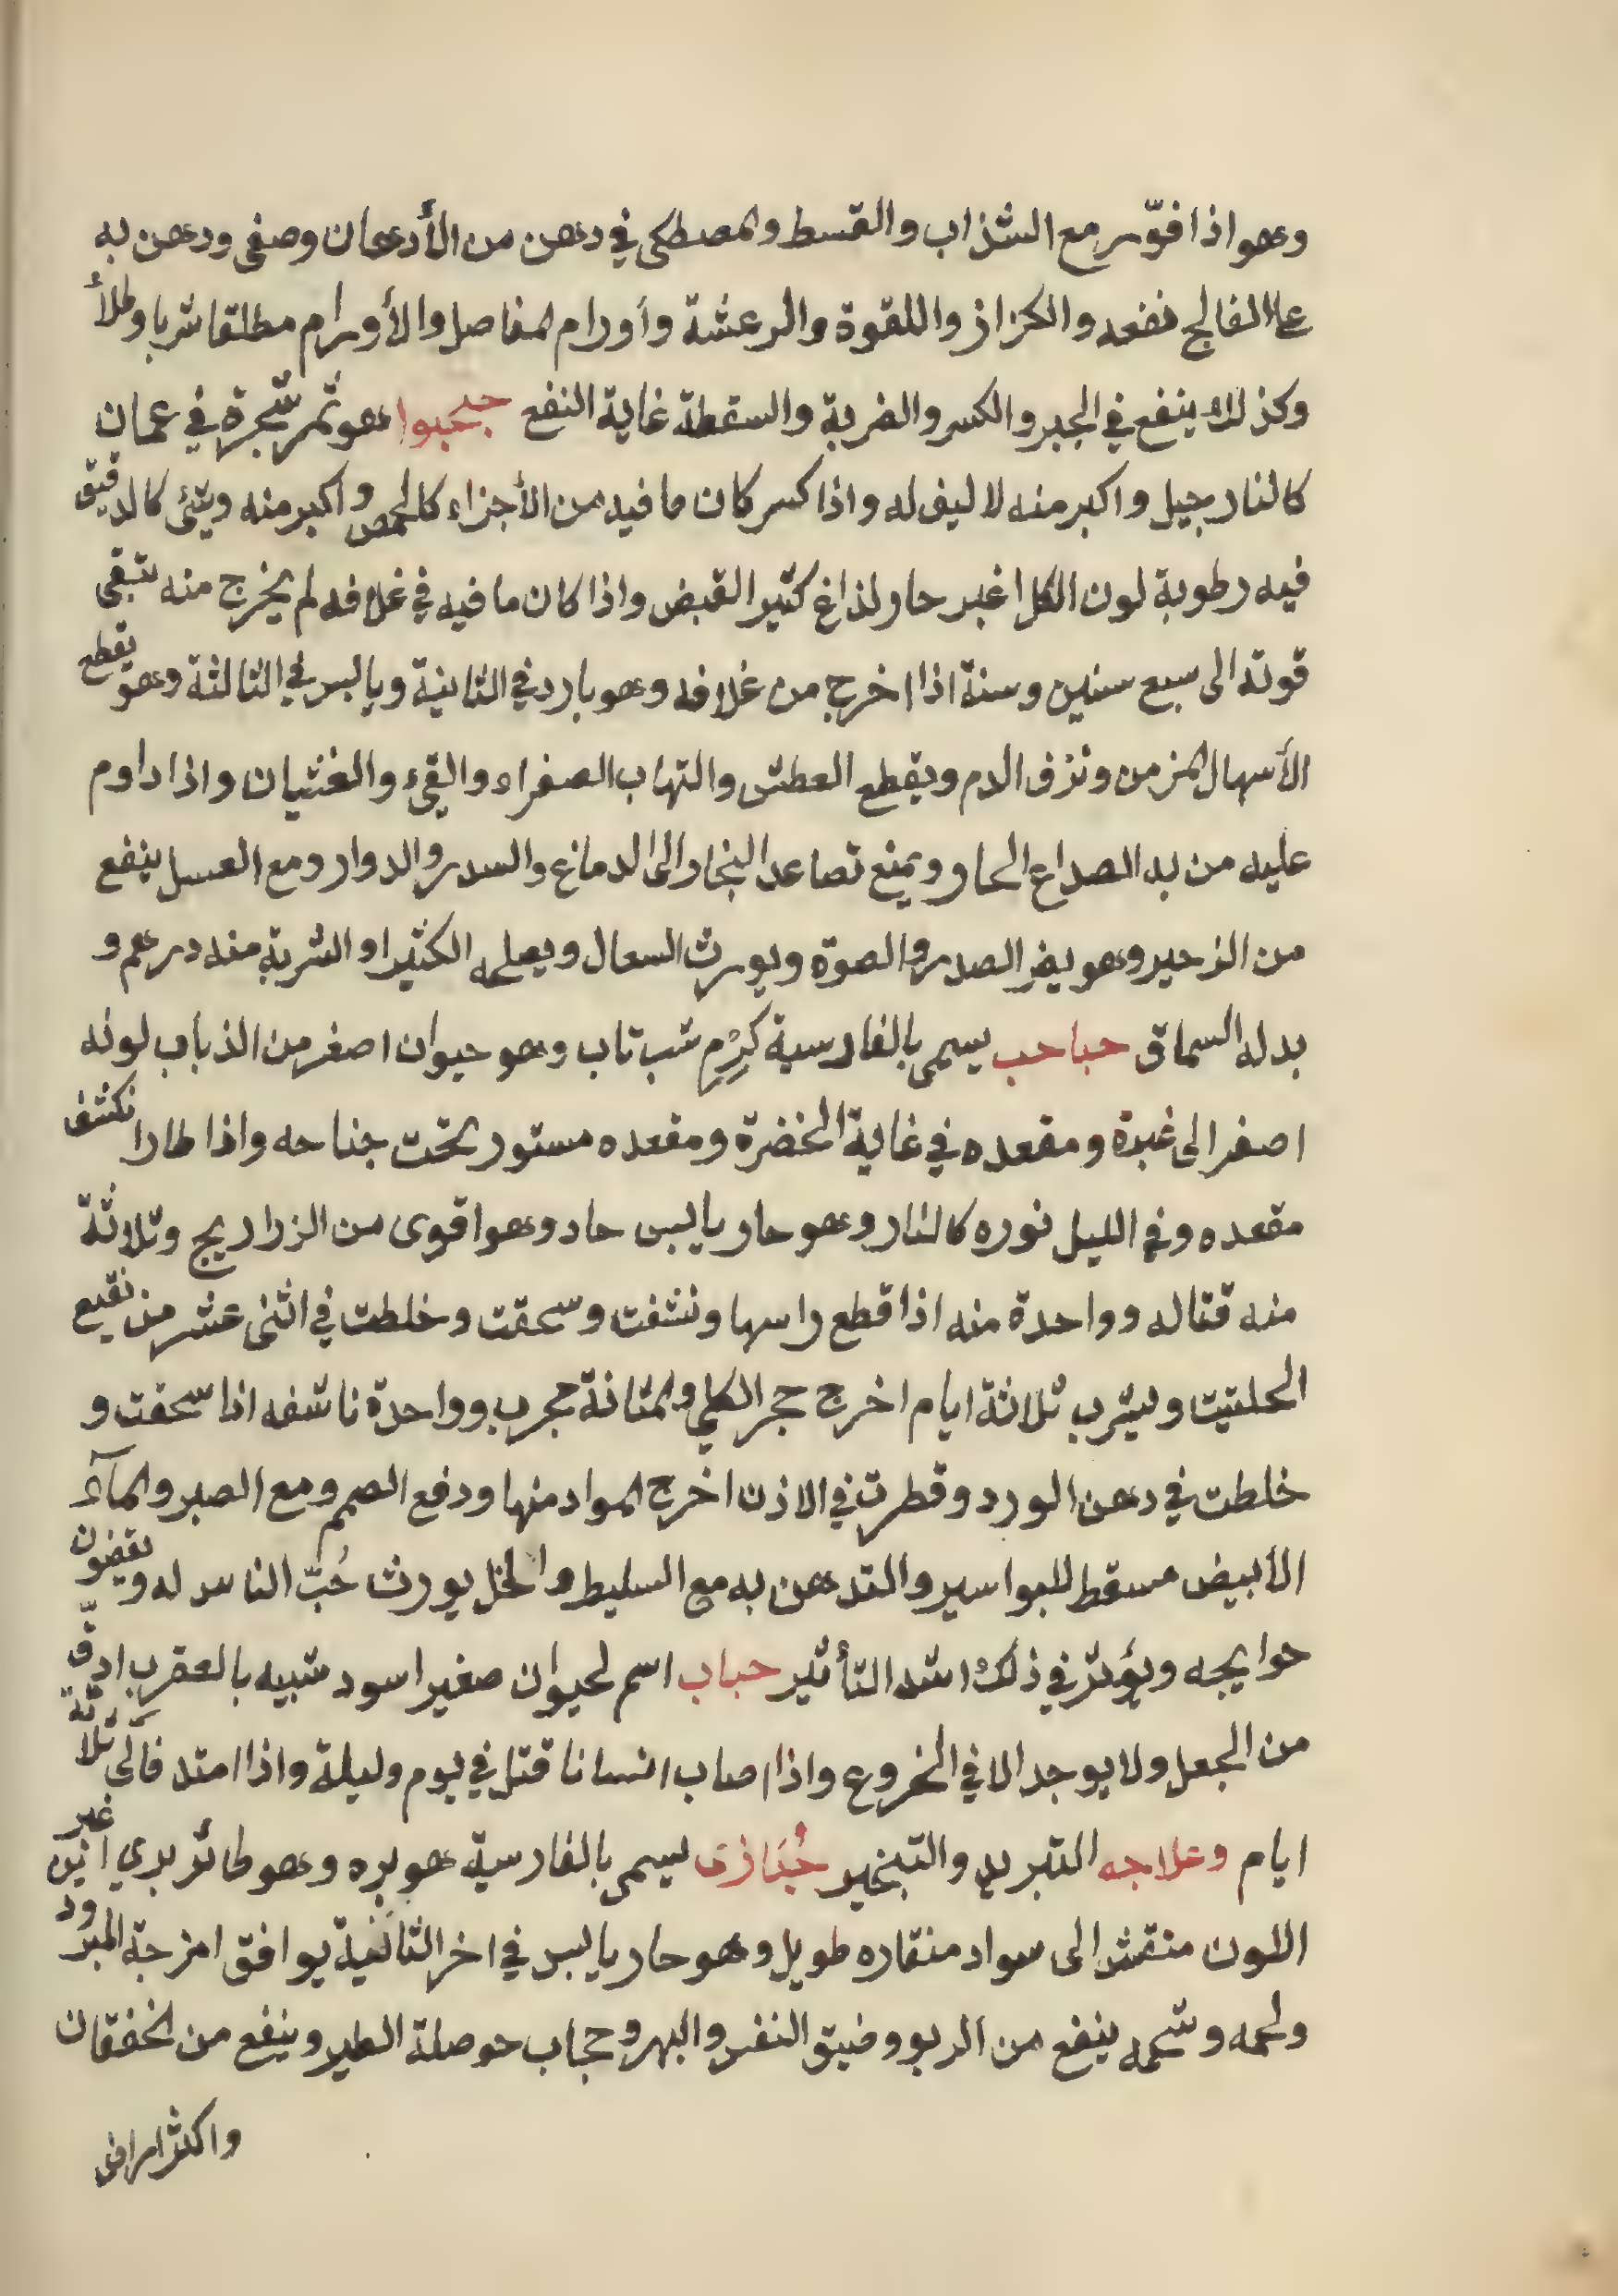 وهو اذا فوّر مع الشذاب والقسط والمصطكى في دهن من الأدهان وصفى ودهن به
على الفالج نفعه والكزاز واللقوة والرعشة وأورام المفاصل والأورام مطلقا شربا وطلأ
وكذلك ينفع في الجبر والكسر والضربة والسقطة غاية النفع حب حبوا هو ثمر شجرة في عمان
كالنارجيل واكبر منه لا ليف له واذا كسر كان ما فيه من الأجزاء كالحمص واكبر منه وشئ كالدقيق
فيه رطوبة لون الكل اغبر حار لذاغ كثير القبض واذا كان ما فيه في غلافه لم يخرج منه تبقى
قوته الى سبع سنين وسنة اذا اخرج من غلافه وهو بارد في الثانية ويابس في الثالثة وهو يقطع
الأسهال المزمن ونزف الدم ويقطع العطش والتهاب الصفراء والقيء والغثيان واذا داوم
عليه من به الصداع الحار ويمنع تصاعد البخار الى الدماغ والسدر والدوار ومع العسل ينفع
من الزحير وهو يضر الصدر والصوة ويورث السعال ويصلحه الكثيرا والشربة منه درهم و
بدله السماق حباحب يسمى بالفارسية كرِمْ شب تاب وهو حيوان اصغر من الذباب لونه
اصفر الى غبرة ومقعده في غاية الخضرة ومقعده مستور تحت جناحه واذا طار انكشف
مقعده وفي الليل نوره كالنار وهو حار يابس حاد وهو اقوى من الزراريج وثلاثة
منه قتاله وواحدة منه اذا قطع راسها ونشفت وسحقت وخلطت في اثنى عشر من نقيع
الحلتيت ويشرب ثلاثة ايام اخرج حجر الكلى والمثانة مجرب وواحدة ناشفه اذا سحقت و
خلطت في دهن الورد وقطرت في الاذن اخرج المواد منها ودفع الصمم ومع الصبر والمآء
الأبيض مسقط للبواسير والتدهن به مع السليط والخل يورث حُبّ الناس له ويقضون
حوايجه ويؤثر في ذلك اشد التأثير حباب اسم لحيوان صغير اسود شبيه بالعقرب ادقّ
من الجعل ولا يوجد الا في الخروع واذا اصاب انسانا قتل في يوم وليلة واذا امتد فالى ثلاثة
ايام وعلاجه التبريد والتبخير حُبَارى يسمى بالفارسية هوبره وهو طائر بري اغبر
اللون منقش الى سواد منقاره طويل وهو حار يابس في اخر الثانية يوافق امزجة المبرود
ولحمه وشحمه ينفع من الربو وضيق النفس والبهر وحجاب حوصلة الطير وينفع من الخفقان
واكثر امراض